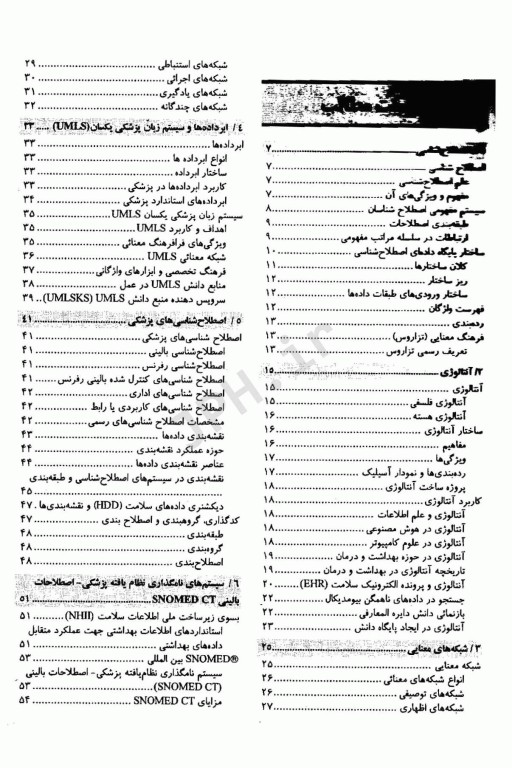 اصطلاح‌شناسی ........ ۷
اصطلاح شناسی ........ ۷
علم اصطلاح‌شناسی ........ ۷
مفهوم و ویژگی‌های آن ........ ۷
سیستم مفهومی اصطلاح شناسان ........ ۸
طبقه‌بندی اصطلاحات ........ ۹
ارتباطات در سلسله مراتب مفهومی ........ ۹
ساختار پایگاه داده‌ای اصطلاح‌شناسی ........ ۱۰
کلان ساختارها ........ ۱۱
ریز ساختار ........ ۱۲
ساختار ورودی‌های طبقات داده‌ها ........ ۱۲
فهرست واژگان ........ ۱۲
رده‌بندی ........ ۱۳
فرهنگ معنایی (تزاروس) ........ ۱۳
تعریف رسمی تزاروس ........ ۱۳
۲/ آنتالوژی ........ ۱۵
آنتالوژی ........ ۱۵
آنتالوژی فلسفی ........ ۱۵
آنتالوژی هسته ........ ۱۶
ساختار آنتالوژی ........ ۱۶
مفاهیم ........ ۱۶
ویژگی‌ها ........ ۱۷
رده‌بندی‌ها و نمودار آسیلیک ........ ۱۷
پروژه ساخت آنتالوژی ........ ۱۸
کاربرد آنتالوژی ........ ۱۸
آنتالوژی و علم اطلاعات ........ ۱۸
آنتالوژی در هوش مصنوعی ........ ۱۸
آنتالوژی در علوم کامپیوتر ........ ۱۸
آنتالوژی در حوزه بهداشت و درمان ........ ۱۹
تاریخچه آنتالوژی در بهداشت و درمان ........ ۱۹
آنتالوژی و پرونده الکترونیک سلامت (EHR) ........ ۲۰
جستجو در داده‌های ناهمگن بیومدیکال ........ ۲۲
بازنمائی دانش دایره المعارفی ........ ۲۲
آنتالوژی در ایجاد پایگاه دانش ........ ۲۲
۳/ شبکه‌های معنایی ........ ۲۵
شبکه معنایی ........ ۲۵
انواع شبکه‌های معنائی ........ ۲۶
شبکه‌های توصیفی ........ ۲۶
شبکه‌های اظهاری ........ ۲۷
شبکه‌های استنباطی ........ ۲۹
شبکه‌های اجرائی ........ ۳۰
شبکه‌های یادگیری ........ ۳۱
شبکه‌های چندگانه ........ ۳۲
۴/ ابرداده‌ها و سیستم زبان پزشکی یکسان(UMLS) ..... ۳۳
ابرداده‌ها ........ ۳۳
انواع ابرداده ها ........ ۳۳
ساختار ابرداده ........ ۳۳
کاربرد ابرداده‌ها در پزشکی ........ ۳۳
ابرداده‌های استاندارد پزشکی ........ ۳۴
سیستم زبان پزشکی یکسان UMLS ........ ۳۵
اهداف و کاربرد UMLS ........ ۳۵
ویژگی‌های فرافرهنگ معنائی ........ ۳۵
شبکه معنائی UMLS ........ ۳۶
فرهنگ تخصصی و ابزارهای واژگانی ........ ۳۷
منابع دانش UMLS در عمل ........ ۳۸
سرویس دهنده منبع دانش UMLS (UMLSKS) .. ۳۹
۵/ اصطلاح‌شناسی‌های پزشکی ........ ۴۱
اصطلاح شناسی‌های پزشکی ........ ۴۱
اصطلاح‌شناسی بالینی ........ ۴۱
اصطلاح‌شناسی رفرنس ........ ۴۱
اصطلاح شناسی‌های کنترل شده بالینی رفرنس ........ ۴۱
اصطلاح شناسی‌های اداری ........ ۴۲
اصطلاح شناسی‌های کاربردی یا رابط ........ ۴۲
مشخصات اصطلاح شناسی‌های رسمی ........ ۴۲
نقشه‌بندی داده‌ها ........ ۴۳
حوزه عملکرد نقشه‌بندی ........ ۴۴
عناصر نقشه‌بندی داده‌ها ........ ۴۴
نقشه‌بندی در سیستم‌های اصطلاح‌شناسی و طبقه‌بندی
........ ۴۵
دیکشنری داده‌های سلامت (HDD) و نقشه‌بندی‌ها . ۴۷
کدگذاری، گروهبندی و اصطلاح بندی ........ ۴۷
طبقه‌بندی ........ ۴۸
گروه‌بندی ........ ۴۸
اصطلاح‌بندی ........ ۴۸
۶/ سیستم‌های نامگذاری نظام یافته پزشکی- اصطلاحات
بالینی SNOMED CT ........ ۵۱
بسوی زیرساخت ملی اطلاعات سلامت (NHII) ........ ۵۱
استانداردهای اطلاعات بهداشتی جهت عملکرد متقابل
داده‌های بهداشتی ........ ۵۱
SNOMED® بین المللی ........ ۵۳
سیستم نامگذاری نظام‌یافته پزشکی-اصطلاحات بالینی
(SNOMED CT) ........ ۵۳
مزایای SNOMED CT ........ ۵۴